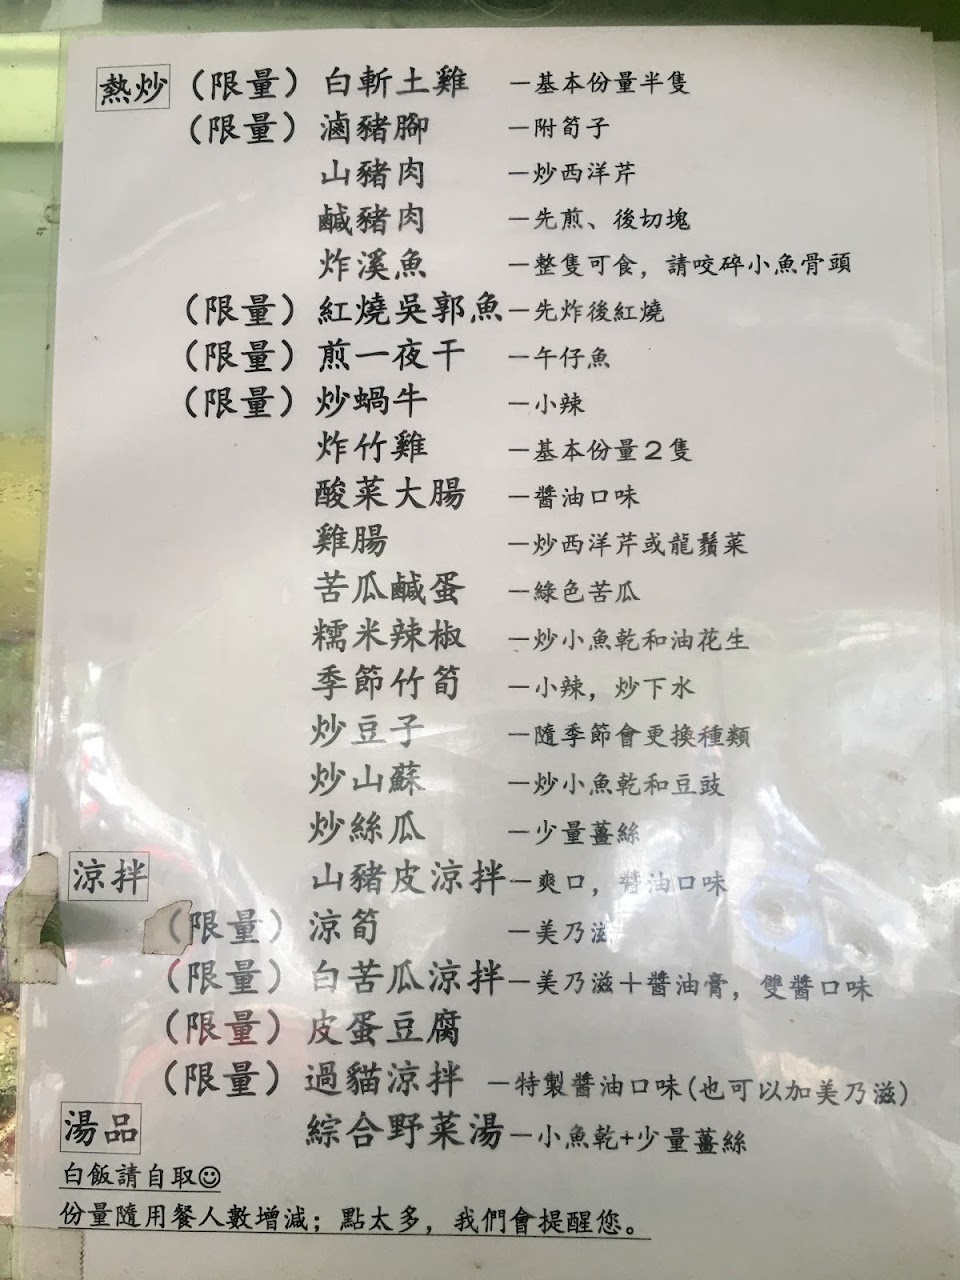 熱炒（限量）白斬土雞 －基本份量半隻
（限量）滷豬腳 －附筍子
山豬肉 －炒西洋芹
鹹豬肉 －先煎、後切塊
炸溪魚 －整隻可食，請咬碎小魚骨頭
（限量）紅燒吳郭魚－先炸後紅燒
（限量）煎一夜干 －午仔魚
（限量）炒蝸牛 －小辣
炸竹雞 －基本份量２隻
酸菜大腸 －醬油口味
雞腸 －炒西洋芹或龍鬚菜
苦瓜鹹蛋 －綠色苦瓜
糯米辣椒 －炒小魚乾和油花生
季節竹筍 －小辣，炒下水
炒豆子 －隨季節會更換種類
炒山蘇 －炒小魚乾和豆豉
炒絲瓜 －少量薑絲
涼拌 山豬皮涼拌－爽口，醬油口味
（限量）涼筍 －美乃滋
（限量）白苦瓜涼拌－美乃滋＋醬油膏，雙醬口味
（限量）皮蛋豆腐
（限量）過貓涼拌 －特製醬油口味(也可以加美乃滋)
湯品 綜合野菜湯－小魚乾+少量薑絲
白飯請自取☺
份量隨用餐人數增減；點太多，我們會提醒您。